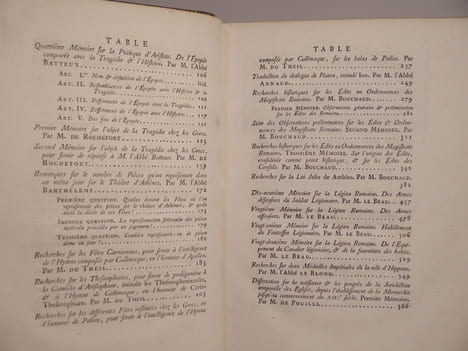 TABLE
Quatrième Mémoire sur la Poétique d'Aristote. De l'Epopée
comparée avec la Tragédie & l'Histoire. Par M. l'Abbé
BATTEUX. 106
ART. I.er Nom & définition de l'Epopée. ibid.
ART. II. Ressemblances de l'Epopée avec l'Histoire & la
Tragédie.
ART. III. Différences de l'Epopée avec la Tragédie.
ART. IV. Différences de l'Epopée avec l'Histoire.
ART. V. Des fins de l'Epopée.
Premier Mémoire sur l'objet de la Tragédie chez les Grecs.
Par M. DE ROCHEFORT. 125
Second Mémoire sur l'objet de la Tragédie chez les Grecs,
pour servir de réponse à M. l'Abbé Batteux. Par M. DE
ROCHEFORT. 159
Remarques sur le nombre de Pièces qu'on représentoit dans
un même jour sur le Théâtre d'Athènes. Par M. l'Abbé
BARTHÉLEMY. 172
PREMIÈRE QUESTION. Quelles étoient les Fêtes où l'on
représentoit des pièces sur le théâtre d'Athènes, & quelle
étoit la durée de ces Fêtes!
SECONDE QUESTION. La représentation solennelle des pièces
étoit-elle précédée par un jugement!
TROISIÈME QUESTION. Combien représentoit-on de pièces
dans un jour! 182
Recherches sur les Fêtes Carnéennes, pour servir à l'intelligence
de l'Hymne composée par Callimaque, en l'honneur d'Apollon.
Par M. DU THEIL. 185
Recherches sur les Thesmophories, pour servir de prolégomène à
la Comédie d'Aristophane, intitulée les Thesmophoriazuses,
& à l'Hymne de Callimaque, en l'honneur de Cérès.
Par M. DU THEIL. 203
Recherches sur les différentes Fêtes instituées chez les Grecs, en
l'honneur de Pallas, pour servir à l'intelligence de l'Hymne
TABLE
composée par Callimaque, sur les bains de Pallas. Par
M. DU THEIL. 237
Traduction du dialogue de Platon, intitulé Ion. Par M. l'Abbé
ARNAUD. 249
Recherches historiques sur les Edits ou Ordonnances des
Magistrats Romains. Par M. BOUCHAUD. 279
PREMIER MÉMOIRE. Observations générales & préliminaires
sur les Edits des Romains.
Suite des Observations préliminaires sur les Edits & Ordonnances
des Magistrats Romains. SECOND MÉMOIRE. Par
M. BOUCHAUD. 311
Recherches historiques sur les Edits ou Ordonnances des Magistrats
Romains. TROISIÈME MÉMOIRE. Sur l'origine des Edits,
considérée comme point historique, & sur les Edits des
Consuls. Par M. BOUCHAUD. 342
Recherches sur la Loi Julia de Ambitu. Par M. BOUCHAUD.
382
Dix-neuvième Mémoire sur la Légion Romaine. Des Armes
défensives du Soldat Légionnaire. Par M. LE BEAU. 437
Vingtième Mémoire sur la Légion Romaine. Des Armes
offensives. Par M. LE BEAU. 478
Vingt-unième Mémoire sur la Légion Romaine. Habillement
du Fantassin Légionnaire. Par M. LE BEAU. 506
Vingt-deuxième Mémoire sur la Légion Romaine. De l'Equipement
du Cavalier légionnaire, & de la fourniture des habits.
Par M. LE BEAU. 529
Recherches sur deux Médailles Impériales de la ville d'Hippone.
Par M. l'Abbé LE BLOND. 549
Dissertation sur la naissance & les progrès de la Juridiction
temporelle des Eglises, depuis l'établissement de la Monarchie
jusqu'au commencement du XIV.e siècle. Premier Mémoire.
Par M. DE POUILLI. 566